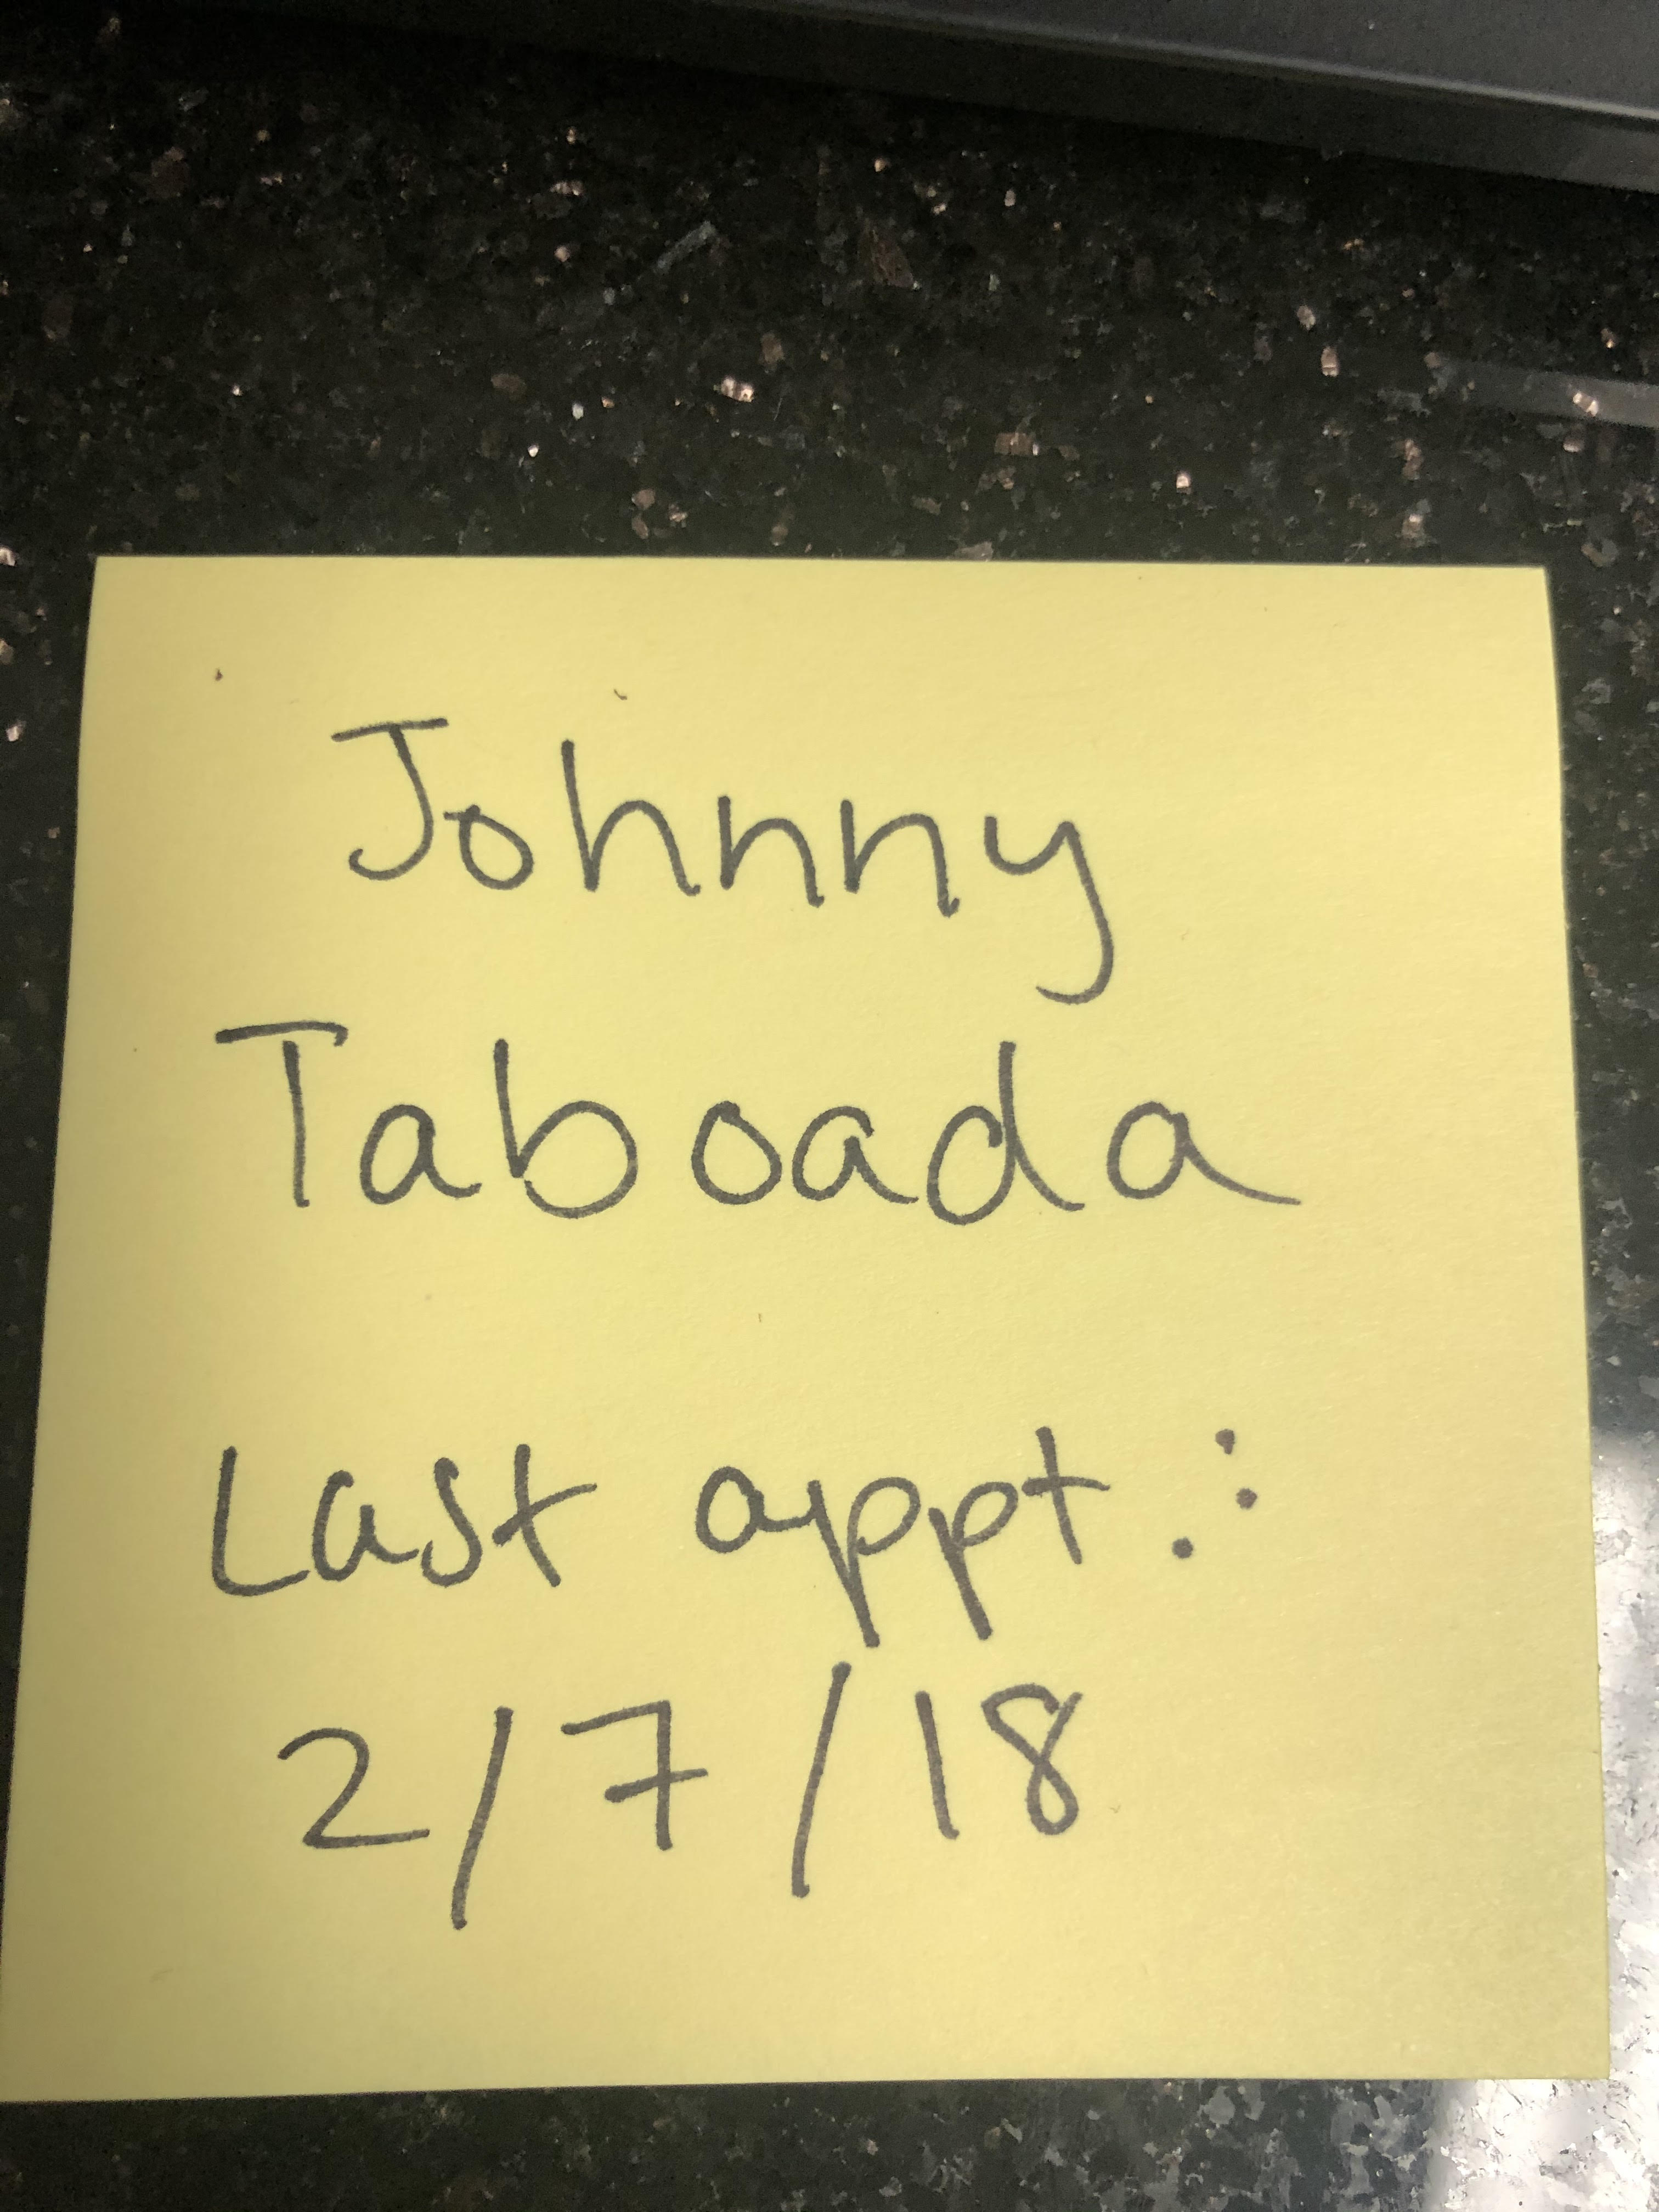 Johnny
Taboada
Last appt.:
2/7/18